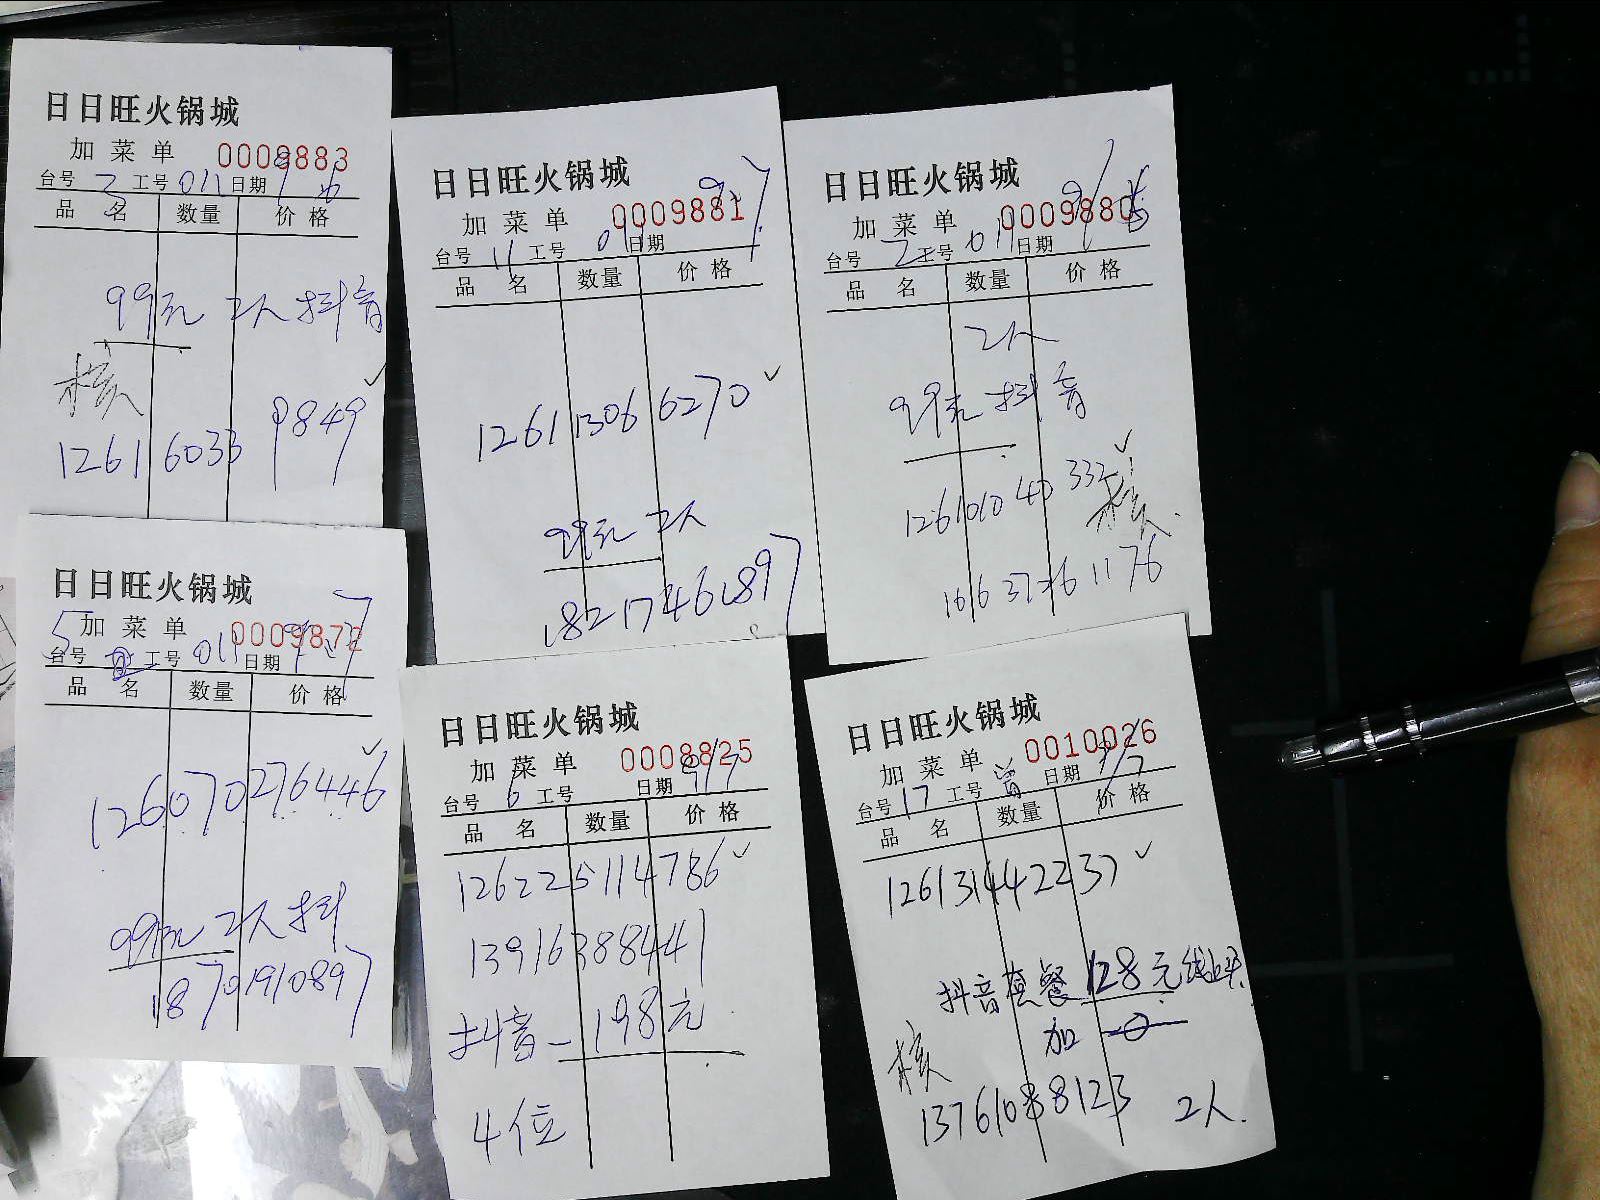 日日旺火锅城
加菜单 0009883
台号 2 工号 011 日期 9/6
品名 数量 价格
99元 2人 抖音
核
1261 6033 9849
日日旺火锅城
加菜单 0009881
台号 11 工号 011 日期 9.7
品名 数量 价格
1261 1306 6270
99元 2人
18217461897
日日旺火锅城
加菜单 0009880
台号 2 工号 011 日期 9/6
品名 数量 价格
2人
99元 抖音
1261010 40 332
核
1663736 1176
日日旺火锅城
加菜单 0009872
台号 5 工号 011 日期 9.7
品名 数量 价格
126070276446
99元 2人 抖
18701910897
日日旺火锅城
加菜单 0008825
台号 6 工号 日期 9/7
品名 数量 价格
126225114786
13916388441
抖音-198元
4位
日日旺火锅城
加菜单 0010026
台号 17 工号 曾 日期 9/7
品名 数量 价格
126131442237
抖音套餐128元线上买
加
核
13761088123 2人.